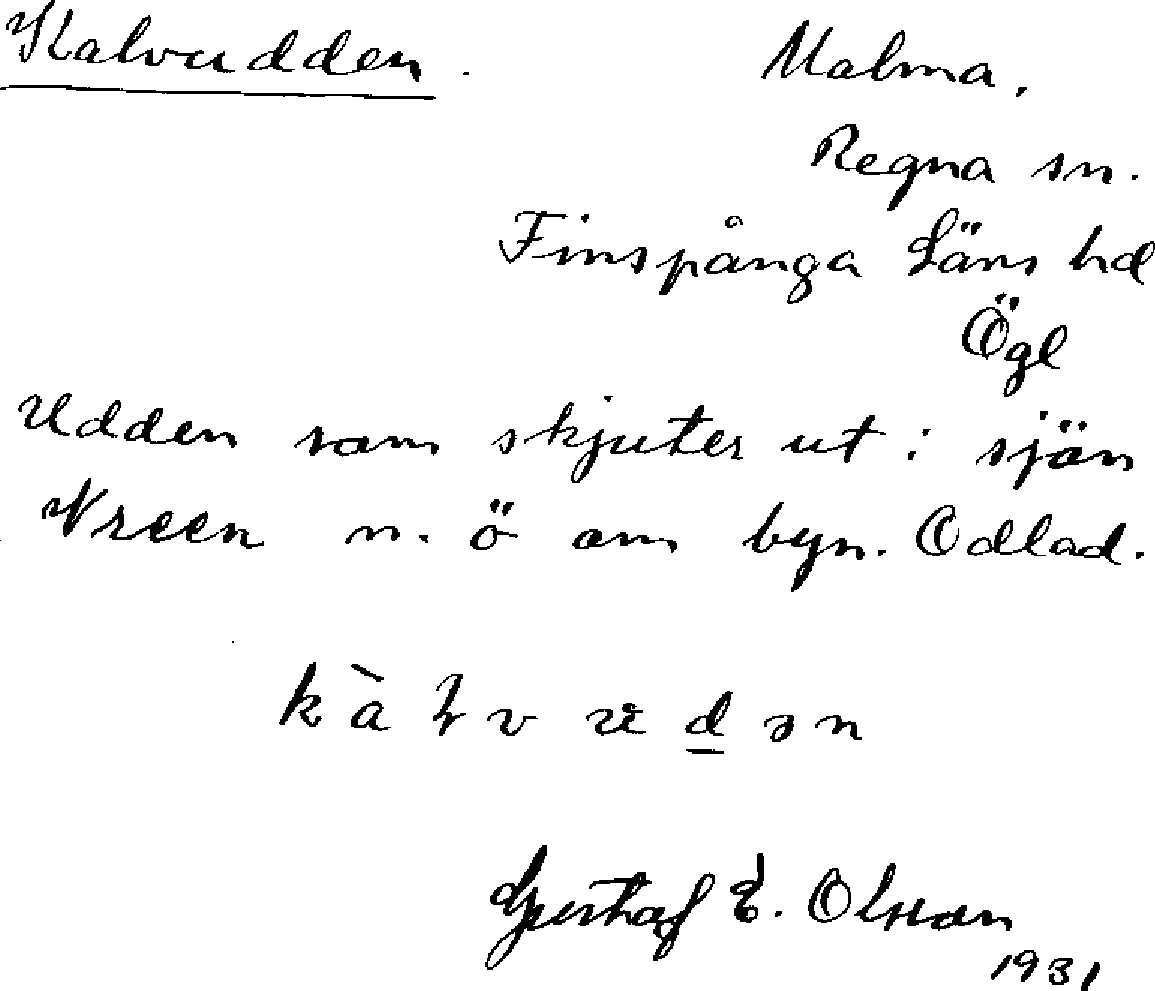 Kalvudden. Malma.
Regna sn.
Finspånga Läns hd
Ögl
Udden som skjuter ut i sjön
Vreen n. ö om byn. Odlad.
Gustaf E. Olsson
1931